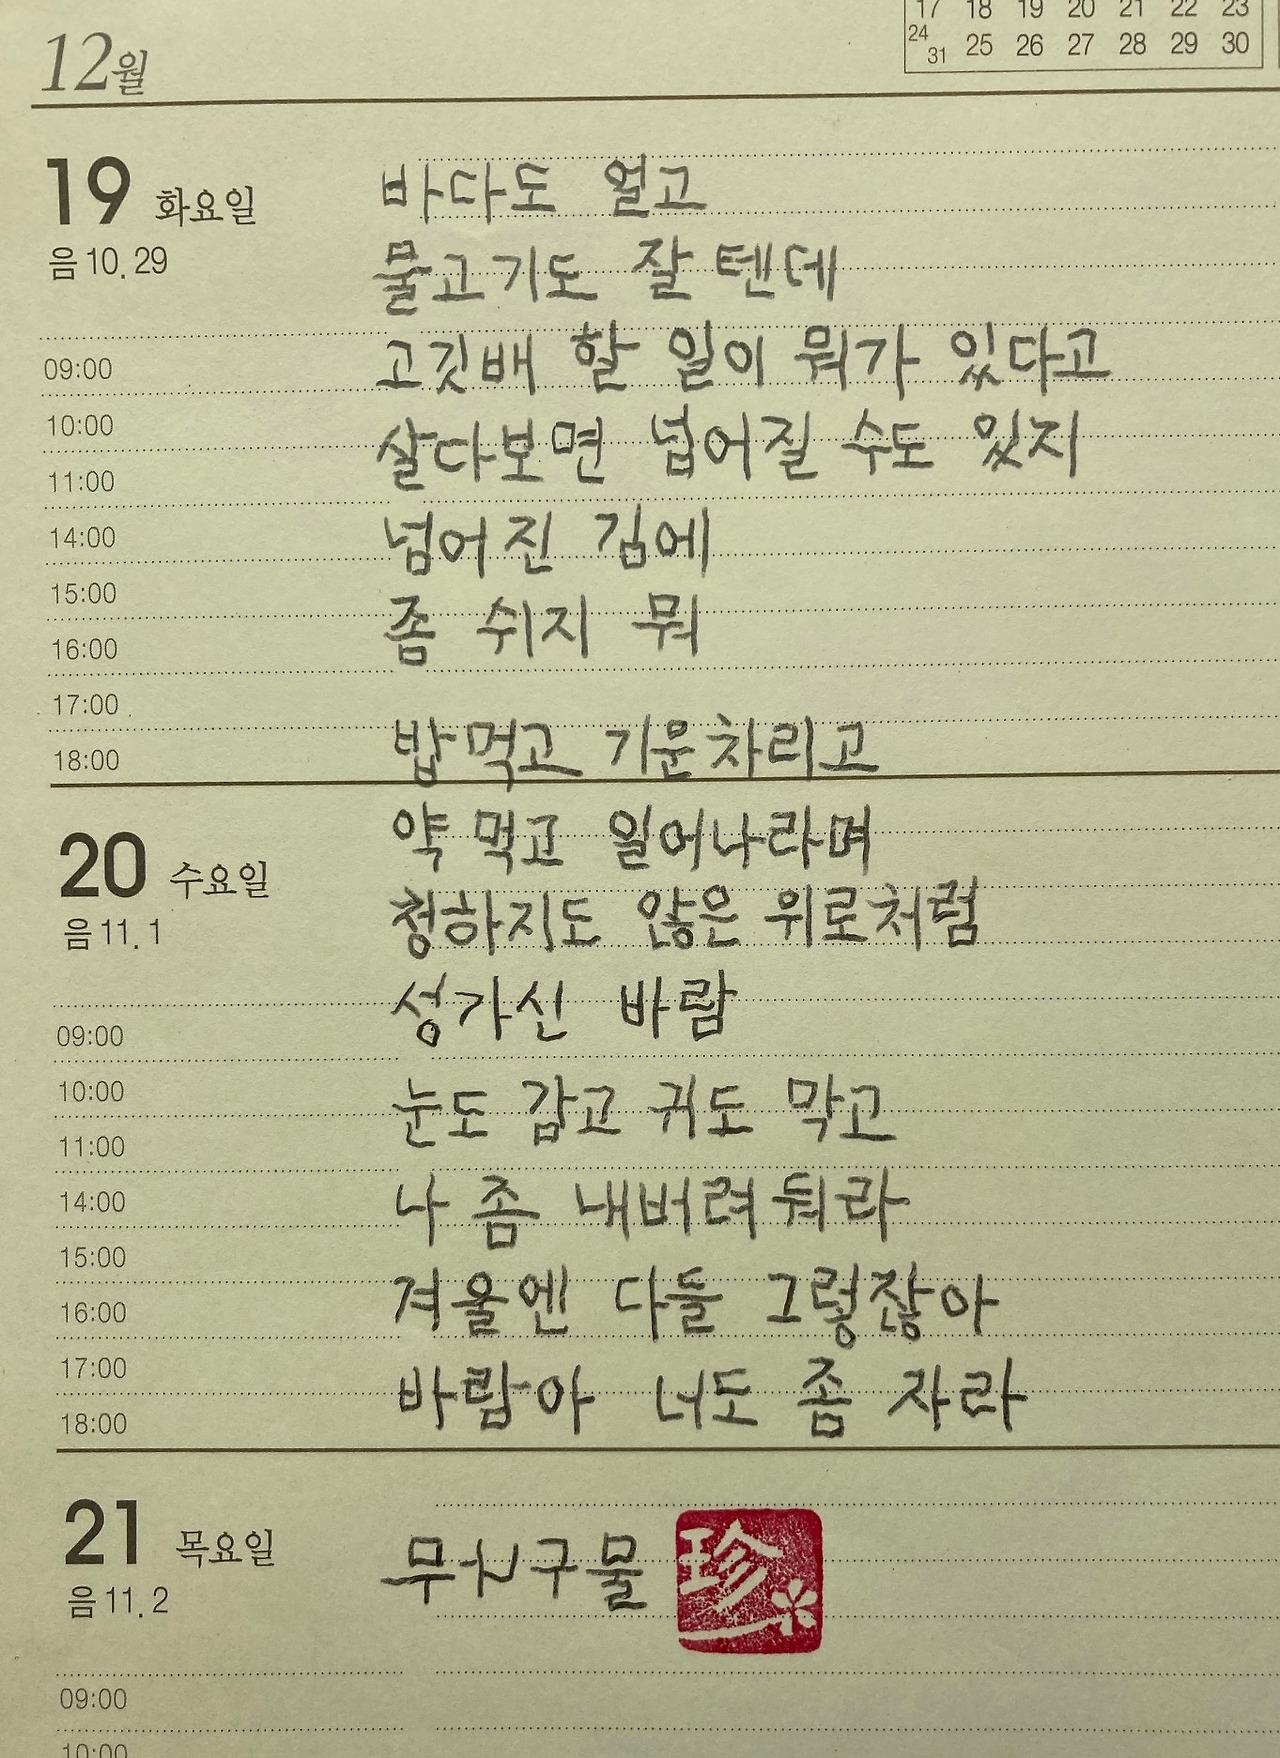 17 18 19 20 21 22 23
24 31 25 26 27 28 29 30
12월
19 화요일
음 10. 29
바다도 얼고
물고기도 잘 텐데
고깃배 할 일이 뭐가 있다고
살다보면 넘어질 수도 있지
넘어진 김에
좀 쉬지 뭐
밥먹고 기운차리고
09:00
10:00
11:00
14:00
15:00
16:00
17:00
18:00
20 수요일
음 11. 1
약 먹고 일어나라며
청하지도 않은 위로처럼
성가신 바람
눈도 감고 귀도 막고
나 좀 내버려둬라
겨울엔 다들 그렇잖아
바람아 너도 좀 자라
09:00
10:00
11:00
14:00
15:00
16:00
17:00
18:00
21 목요일
음 11. 2
珍
09:00
10:00